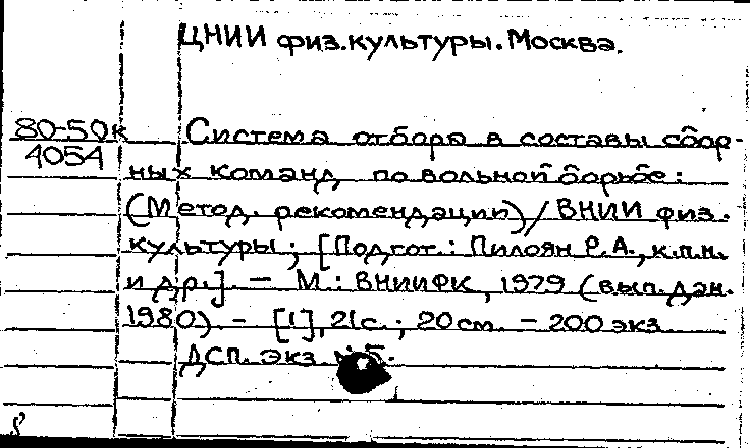 ЦНИИ физ.культуры. Москва.
80-50к
4054
Система отбора в составы сбор-
ных команд по вольной борьбе:
(Метод. рекомендации) / ВНИИ физ.
культуры; [Подгот.: Пилоян Р.А., к.п.н.
и др.]. — М.: ВНИИФК, 1979 (вып. дан.
1980). - [1], 21с.; 20 см. - 200 экз.
ДСП. Экз. №5.